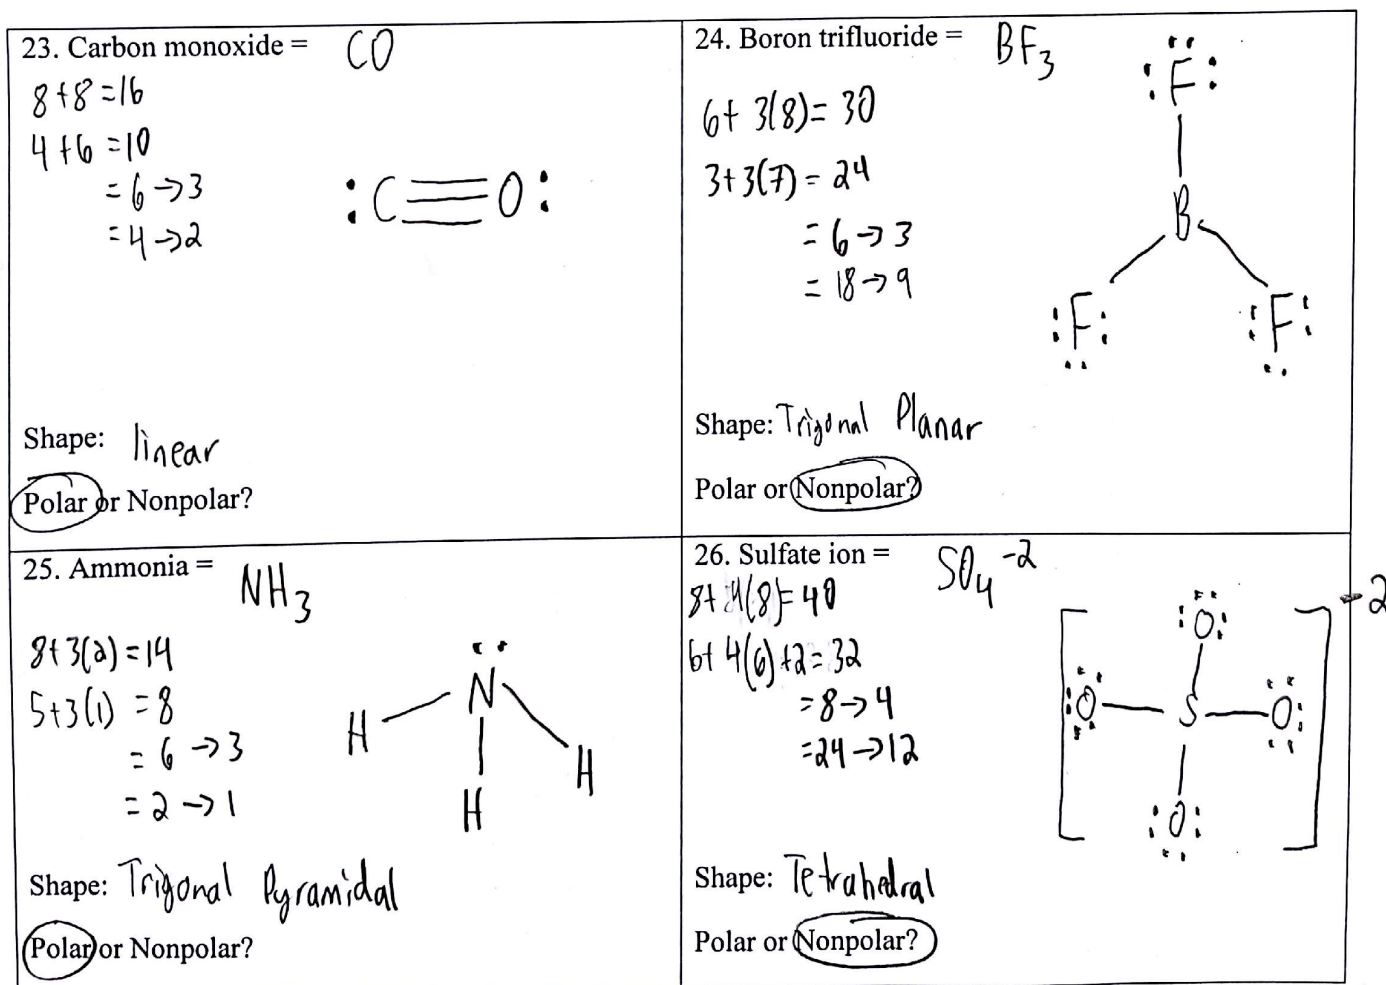 23. Carbon monoxide = CO
8+8=16
4+6=10
=6→3
=4→2
:C≡O:
Shape: linear
Polar or Nonpolar?
24. Boron trifluoride = BF3
6+3(8)=30
3+3(7)=24
=6→3
=18→9
F
B
F F
Shape: Trigonal Planar
Polar or Nonpolar?
25. Ammonia = NH3
8+3(2)=14
5+3(1)=8
=6→3
=2→1
N
H H
H
Shape: Trigonal Pyramidal
Polar or Nonpolar?
26. Sulfate ion = SO4 -2
8+4(8)=40
6+4(6)+2=32
=8→4
=24→12
-2
O
O S O
O
Shape: Tetrahedral
Polar or Nonpolar?